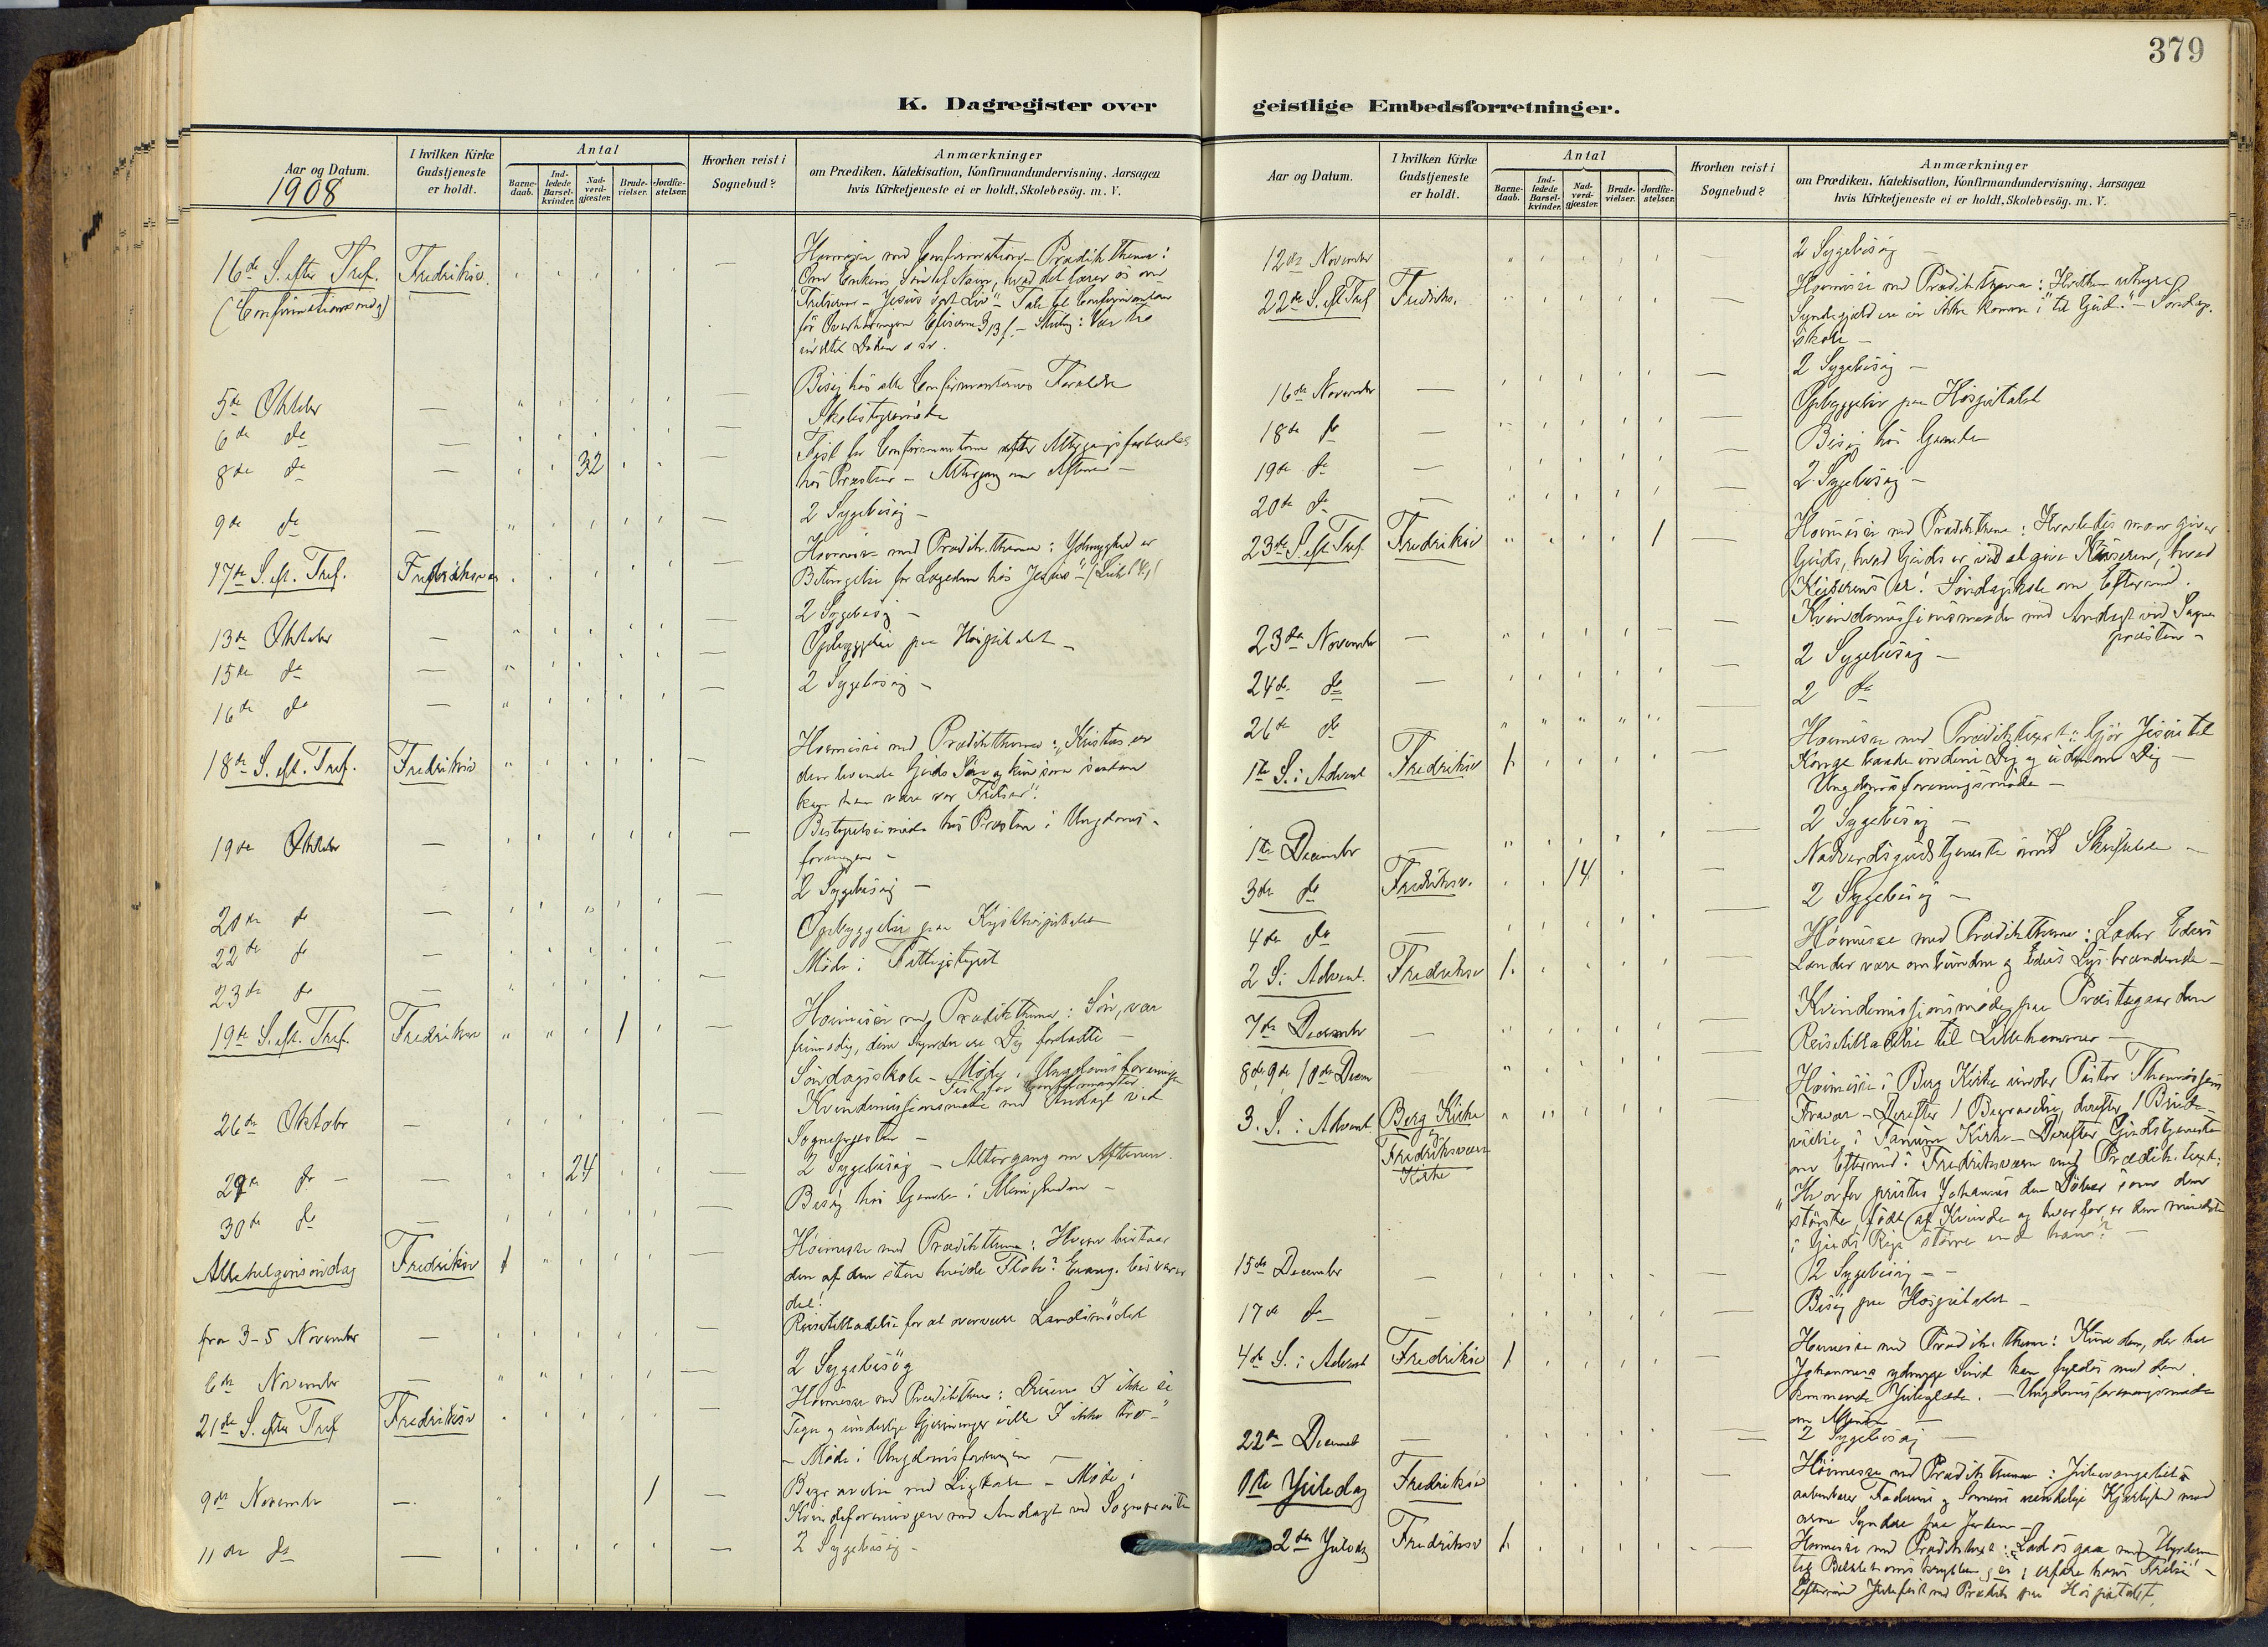 379
K. Dagregister over
geistlige Embedsforretninger.
Aar og Datum.
1908
I hvilken Kirke Gudstjeneste er holdt.
Antal
Barne-daab.
Ind-ledede Barsel-kvinder.
Nad-verd-gjæster.
Brude-vielser.
Jordfæ-stelser.
Hvorhen reist i Sognebud?
Anmærkninger
om Prædiken, Katekisation, Konfirmandundervisning. Aarsagen
hvis Kirketjeneste ei er holdt, Skolebesög. m. V.
16de S. efter Tref. Fredriksv. Høimesse med Confirmation - Prædik thema:
(Confirmationsdag) Om Enkens Søn af Nain, hvad det lærer os om
Frelseren - Jesus vort Liv" - Tale til Confirmanterne
indtil Døden
5te Oktober — Besøg hos alle Confirmanternes Forældre
6te do — Skolestyremøde
8de do — 32 Confirmanterne
hos Præsten - Altergang om Aftenen -
9de do — 2 Sygebesøg -
17de S. eft. Tref. Fredriksværn Høimesse med Prædik. thema: Ydmyghed er
Betingelse for Lægedom hos Jesus" -
13de Oktober — 2 Sygebesøg -
15de do — Opbyggelse paa Hospitalet -
16de do — 2 Sygebesøg -
18de S. eft. Tref. Fredriksv Høimesse med Prædikthema: "Kristus er
den levende Guds Søn og kun som saadan
kan han være vor Frelser".
19de Oktober — Bestyrelsesmøde hos Præsten i Ungdoms-
foreningen -
20de do — 2 Sygebesøg -
22de do — Opbyggelse paa Kysthospitalet
23de do — Møde i Fattigstyret
19de S. eft. Tref. Fredriksv 1 Høimesse med Prædikthema: Søn, vær
frimodig, dine Synder ere Dig forladte -
Søndagsskole - Møde i Ungdomsforeningen
26de Oktober — Kvindemissionsmøde med Andagt ved
Sognepresten -
29de do — 24 2 Sygebesøg - Altergang om Aftenen.
30de do — Besøg hos Gamle i Menigheden -
Allehelgensøndag Fredriksv 1 Høimesse med Prædikthema: Hvem bestaar
den af den store hvide Flok? Evang. besvarer
det!
fra 3-5 November — Reisetilladelse for at overvære Landsmødet
6te November — 2 Sygebesøg
21de S. efter Tref Fredriksv Høimesse med Prædikthema: Dersom I ikke se
Tegn og underlige Gjerninger ville I ikke tro -"
- Møde i Ungdomsforeningen -
9de November — 1 Begravelse med Ligtale - Møde i
Kvindeforeningen med Andagt ved Sognepresten
11te do — 2 Sygebesøg -
Aar og Datum.
I hvilken Kirke Gudstjeneste er holdt.
Antal
Barne-daab.
Ind-ledede Barsel-kvinder.
Nad-verd-gjæster.
Brude-vielser.
Jordfæ-stelser.
Hvorhen reist i Sognebud?
Anmærkninger
om Prædiken, Katekisation, Konfirmandundervisning. Aarsagen
hvis Kirketjeneste ei er holdt, Skolebesög. m. V.
12te November 2 Sygebesøg -
22de S. eft Tref Fredriksv. Høimesse med Prædikthema:
Syndegjæld til Gud." - Søndags-
skole -
16de November — 2 Sygebesøg -
18de do — Opbyggelse paa Hospitalet
19de do — Besøg hos Gamle
20de do — 2 Sygebesøg -
23de S. eft Tref. Fredriksv 1 Høimesse med Prædikthema: Hvorledes man giver
Gud, hvad Guds er, ved at give Keiseren, hvad
Keiserens er! Søndagskole om Efterm.
23de November — Kvindemissionsmøde med Andagt ved Sogne
præsten -
24de do — 2 Sygebesøg -
26de do 2 do
1ste S. i Advent Fredriksv 1 Høimesse med Prædiktext: Gjør Jesus til
Konge baade indeni Dig og udenom Dig -
Ungdomsforeningsmøde -
1ste December — 2 Sygebesøg -
3de do Fredriksv. 14 Nadverdsgudstjeneste med Skriftetale -
4de do — 2 Sygebesøg -
2 S. i Advent. Fredriksv 1 Høimesse med Prædikthema: Lader Eders
Lænder være ombundne og Eders Lys brændende -
7de December — Kvindemissionsmøde paa Præstegaarden
8de, 9de, 10de Decem — Reisetilladelse til Lillehammer -
3. S. i Advent. Berg Kirke
Fredriksværn Kirke
Høimesse i Berg Kirke under Pastor
Fravær - Derefter 1 Begravelse, derefter 1 Brude-
vielse i Tanum Kirke - Derefter Gudstjeneste
om Efterm. i Fredriksværn med Prædik. text:
"Hvorfor prises Johannes den Døber som den
største, født af Kvinder og hvorfor er den mindste
i Guds Rige større end han? -
15de December — 2 Sygebesøg -
17de do — Besøg paa Hospitalet -
4de S. i Advent Fredriksv 1 Høimesse med Prædik. thema: Kun den, der har
Johannes's ydmyge Sind kan fyldes med den
kommende Juleglæde. - Ungdomsforeningsmøde
om Aftenen -
22de December — 2 Sygebesøg -
1ste Juledag Fredriksv Høimesse med Prædikthema: Juleevangeliet
aabenbarer Faderens og Sønnens uendelige Kjærlighed mod
arme Syndere paa Jorden -
2den Juledag Fredriksv 1 Høimesse med Prædiktext: Lad os gaa med Hyrderne
til Bethlehems krybben og erfare hans Frelse -
Efterm Julefest med Prædik paa Hospitalet.